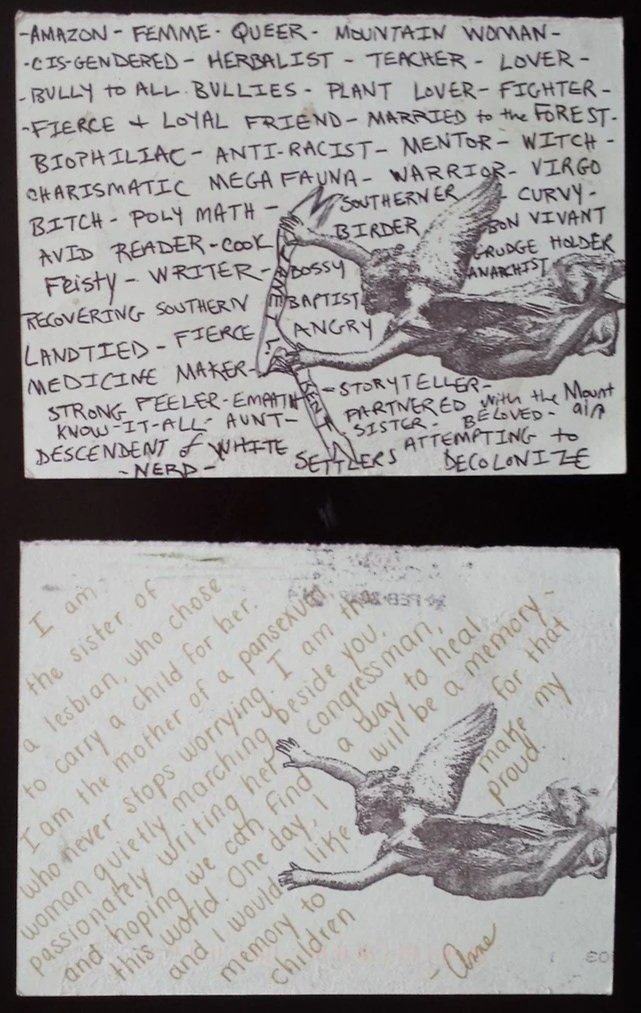 -AMAZON - FEMME - QUEER - MOUNTAIN WOMAN-
-CIS-GENDERED - HERBALIST - TEACHER - LOVER -
-BULLY to ALL BULLIES - PLANT LOVER- FIGHTER-
-FIERCE + LOYAL FRIEND - MARRIED to the FOREST-
BIOPHILIAC - ANTI-RACIST - MENTOR - WITCH -
CHARISMATIC MEGA FAUNA - WARRIOR - VIRGO
BITCH - POLY MATH - SOUTHERNER - CURVY -
BIRDER BON VIVANT
AVID READER - COOK GRUDGE HOLDER
Feisty - WRITER - BOSSY ANARCHIST
RECOVERING SOUTHERN BAPTIST
LANDTIED - FIERCE ANGRY
MEDICINE MAKER-
JANET KENT
-STORYTELLER-
STRONG FEELER - EMPATH PARTNERED with the Mountain
KNOW-IT-ALL - AUNT - SISTER - BELOVED-
DESCENDENT of WHITE SETTLERS ATTEMPTING to DECOLONIZE
-NERD-
I am
the sister of
a lesbian, who chose
to carry a child for her.
I am the mother of a pansexual
who never stops worrying. I am the
woman quietly marching beside you,
passionately writing her congressman,
and hoping we can find a way to heal
this world. One day, I will be a memory-
and I would like for that
memory to make my
children proud.
- Anne